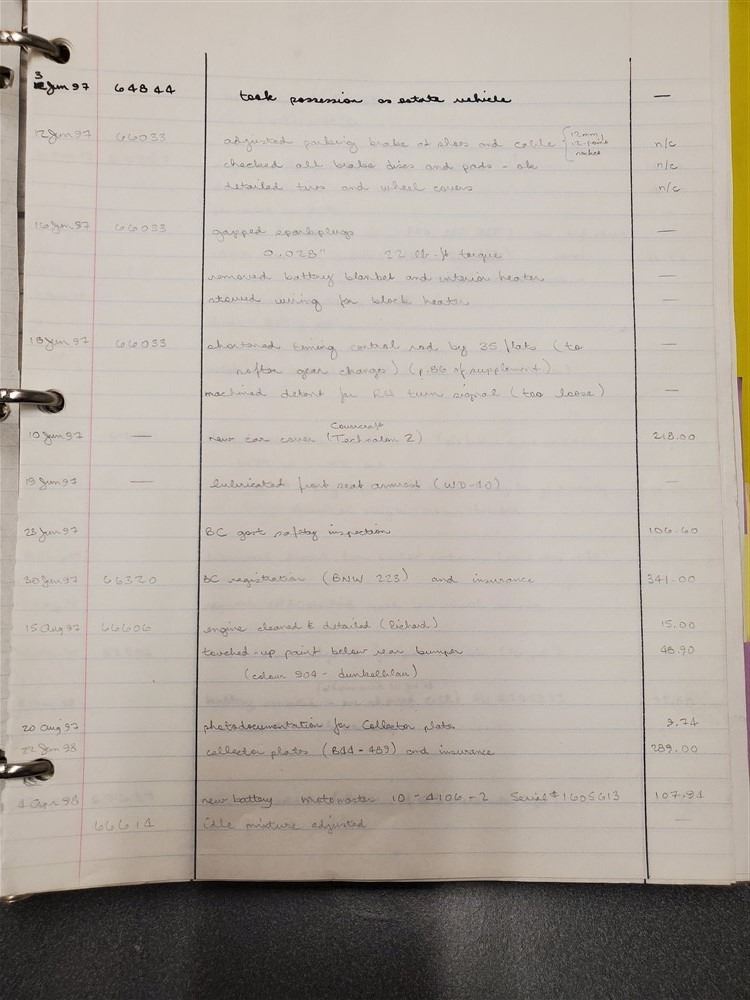 3 Jun 97 64844 took possession as estate vehicle —
12 Jun 97 66033 adjusted parking brake at shoes and cable {12 mm, 12-point n/c
checked all brake discs and pads - ok n/c
detailed tires and wheel covers n/c
16 Jun 97 66033 gapped sparkplugs —
0.028" 22 lb-ft torque
removed battery blanket and interior heater —
stowed wiring for block heater —
18 Jun 97 66033 shortened timing control rod by 35 flats (to —
soften gear changes) (p.86 of supplement)
machined detent for RH turn signal (too loose) —
10 Jun 97 — new car cover (Covercraft Technalon 2) 218.00
19 Jun 97 — lubricated front seat armrest (WD-40) —
25 Jun 97 BC govt safety inspection 106.60
30 Jun 97 66320 BC registration (BNW 223) and insurance 341.00
15 Aug 97 66606 engine cleaned & detailed (Richard) 15.00
touched-up paint below rear bumper 48.90
(colour 904 - dunkelblau)
20 Aug 97 photodocumentation for Collector plates 9.74
22 Jan 98 collector plates (B44-489) and insurance 289.00
4 Apr 98 new battery Motomaster 10-4106-2 Serial # 1605613 107.94
66614 idle mixture adjusted —